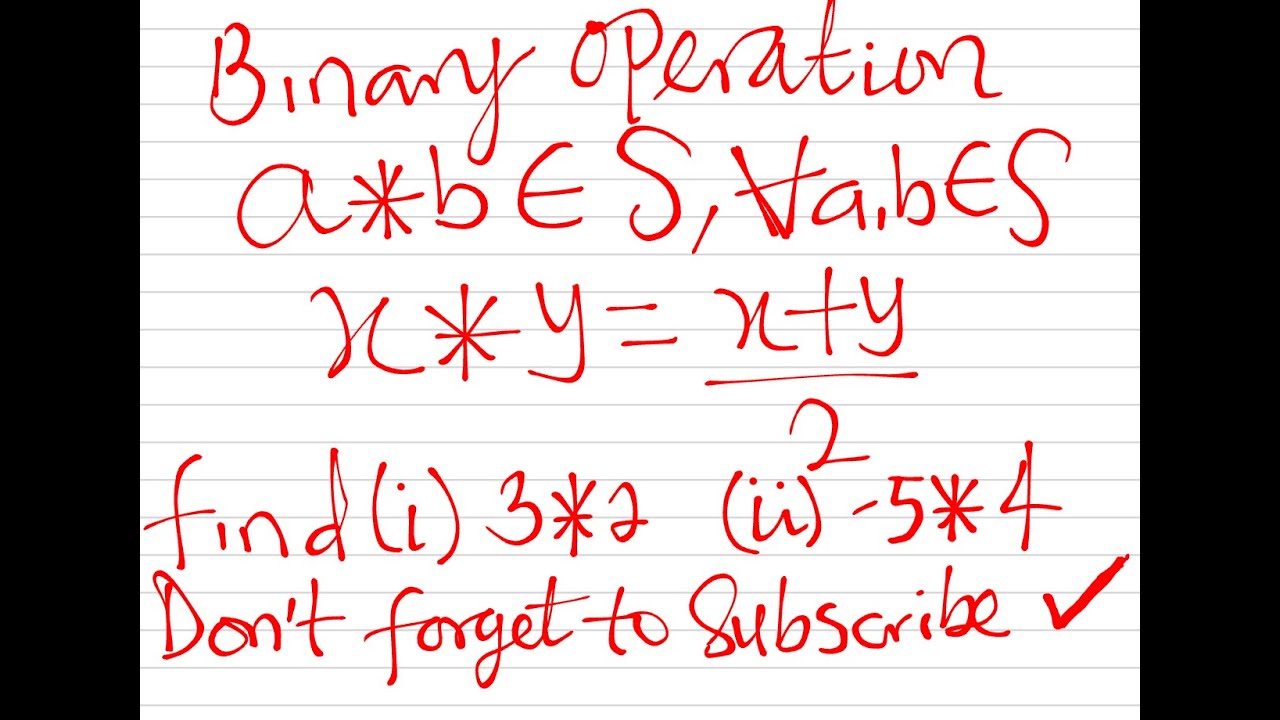 Binary Operation
a*b∈S, ∀a,b∈S
x * y = x+y
2
find (i) 3*2 (ii) -5*4
Don't forget to Subscribe ✓